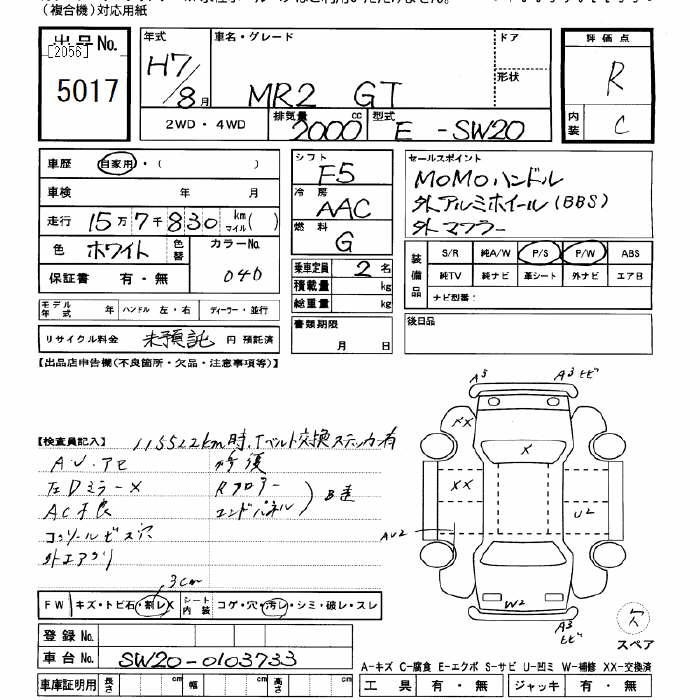 (複合機)対応用紙
出品No.
[2056]
5017
年式 H7/8月
車名・グレード MR2 GT
ドア
形状
2WD・4WD
排気量 2000 cc
型式 E-SW20
評価点 R
内装 C
車歴 自家用・( )
車検 年 月
走行 15万7千830 km マイル( )
色 ホワイト 色替 カラーNo. 040
保証書 有・無
モデル年式 年 ハンドル 左・右 ディーラー・並行
リサイクル料金 未預託 円 預託済
シフト F5
冷房 AAC
燃料 G
乗車定員 2 名
積載量 kg
総重量 kg
書類期限 月 日
セールスポイント
MOMOハンドル
外アルミホイール(BBS)
外マフラー
装備品 S/R 純A/W P/S P/W ABS
純TV 純ナビ 革シート 外ナビ エアB
ナビ型番:
後日品
【出品店申告欄(不良箇所・欠品・注意事項等)】
【検査員記入】 115522km時、Tベルト交換ステッカー有
AU.アセ 修復
左Dミラー×
Rフロアー
エンドパネル
B違
AC不良
コンソールビス穴
外エアクリ
3cm
FW キズ・トビ石・割レ× シート内装 コゲ・穴・汚レ・シミ・破レ・スレ
登録No.
車台No. SW20-0103733
車庫証明用 長さ cm 幅 cm 高さ cm
A3
A3 ヒビ
××
×
××
U2
AU2
W2
A3
ヒビ
欠
スペア
A-キズ C-腐食 E-エクボ S-サビ U-凹ミ W-補修 XX-交換済
工具 有・無 ジャッキ 有・無